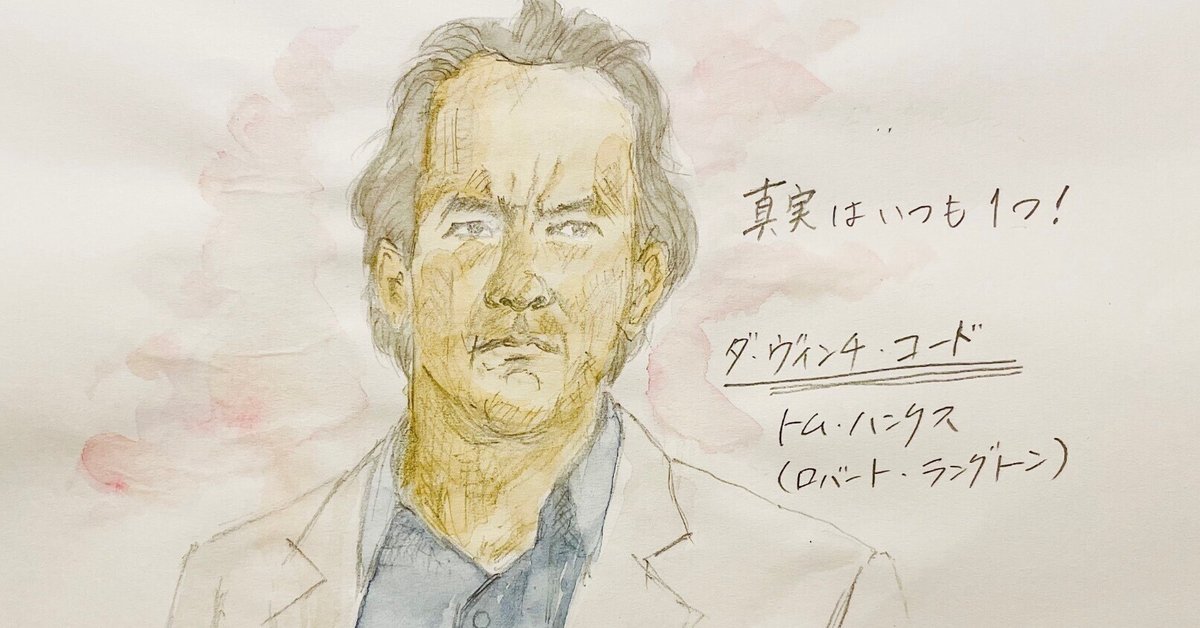 真実はいつも1つ!
ダ・ヴィンチ・コード
トム・ハンクス
(ロバート・ラングトン)